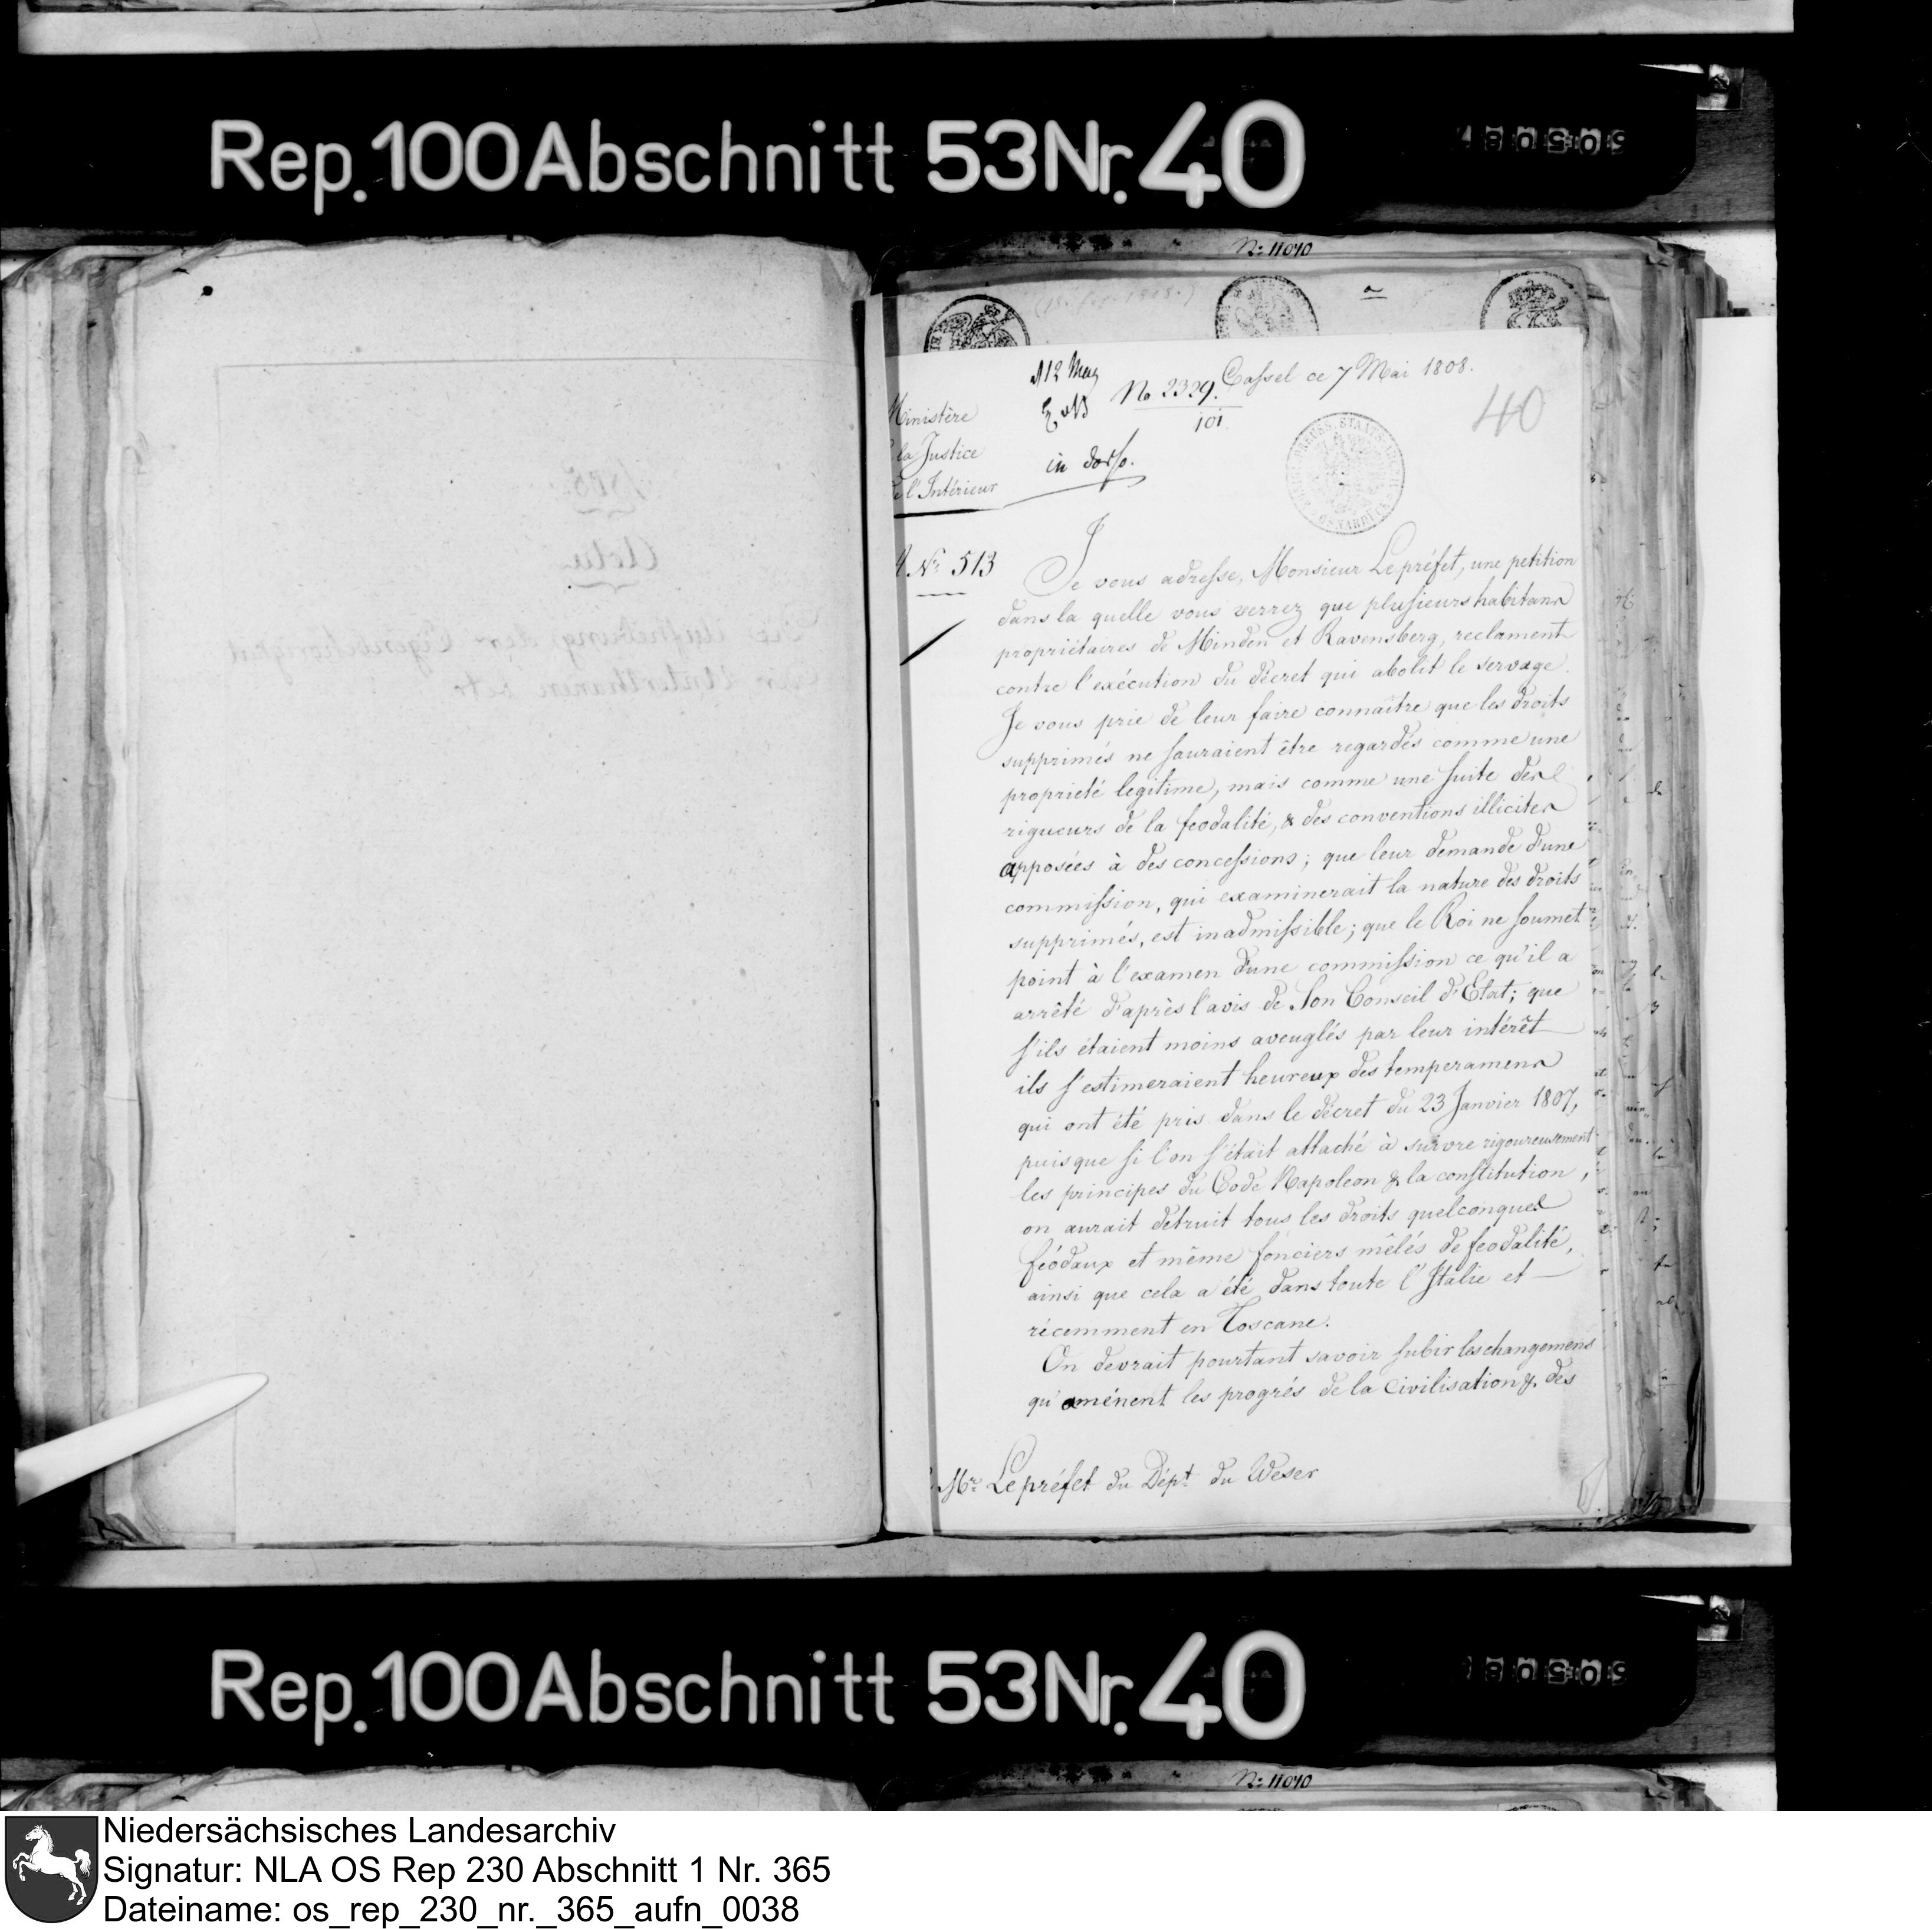 Rep. 100 Abschnitt 53 Nr. 40
No: 11040
Cassel ce 7 Mai 1808.
No 2329.
101
40
Ministère
la Justice
l'Intérieur
in dorso.
Nº 513
Je vous adresse, Monsieur Le préfet, une petition
dans la quelle vous verrez que plusieurs habitans
propriétaires de Minden et Ravensberg, reclament
contre l'exécution du décret qui abolit le servage.
Je vous prie de leur faire connaître que les droits
supprimés ne sauraient être regardés comme une
propriété legitime, mais comme une suite des
rigueurs de la feodalité, & des conventions illicites
apposées à des concessions; que leur demande d'une
commission, qui examinerait la nature des droits
supprimés, est inadmissible; que le Roi ne soumet
point à l'examen d'une commission ce qu'il a
arrêté d'après l'avis de Son Conseil d'Etat; que
s'ils étaient moins aveuglés par leur intérêt
ils s'estimeraient heureux des temperamens
qui ont été pris dans le décret du 23 Janvier 1807,
puisque si l'on s'était attaché à suivre rigoureusement
les principes du Code Napoleon & la constitution,
on aurait detruit tous les droits quelconques
féodaux et même fonciers mêlés de feodalité,
ainsi que cela a été dans toute l'Italie et
récemment en Toscane.
On devrait pourtant savoir subir les changemens
qu'amènent les progrés de la Civilisation & des
Mr. Le préfet du Dépt. du Weser
Rep. 100 Abschnitt 53 Nr. 40
No: 11040
Niedersächsisches Landesarchiv
Signatur: NLA OS Rep 230 Abschnitt 1 Nr. 365
Dateiname: os_rep_230_nr._365_aufn_0038